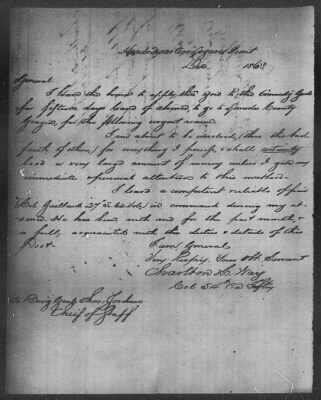 Headquarters
Dec 1863
General:
I have the honor to apply thro you to the Comdg Genl
for fifteen days leave of absence, to go to Lowndes County
Georgia, for the following urgent reason.
I am about to be involved, (thro the bad
faith of others,) for everything I possess, & shall certainly
lose a very large amount of money unless I give my
immediate & personal attention to this matter.
I leave a competent & reliable officer
in command during my ab-
sence. He has been with me for the past month, &
is fully acquainted with the duties & details of this
Post.
I am General
Very Respfy Your Obt Servant
Charlton H. Way
Col 54 Ga
To Brig Genl Thos Jordan
Chief of Staff